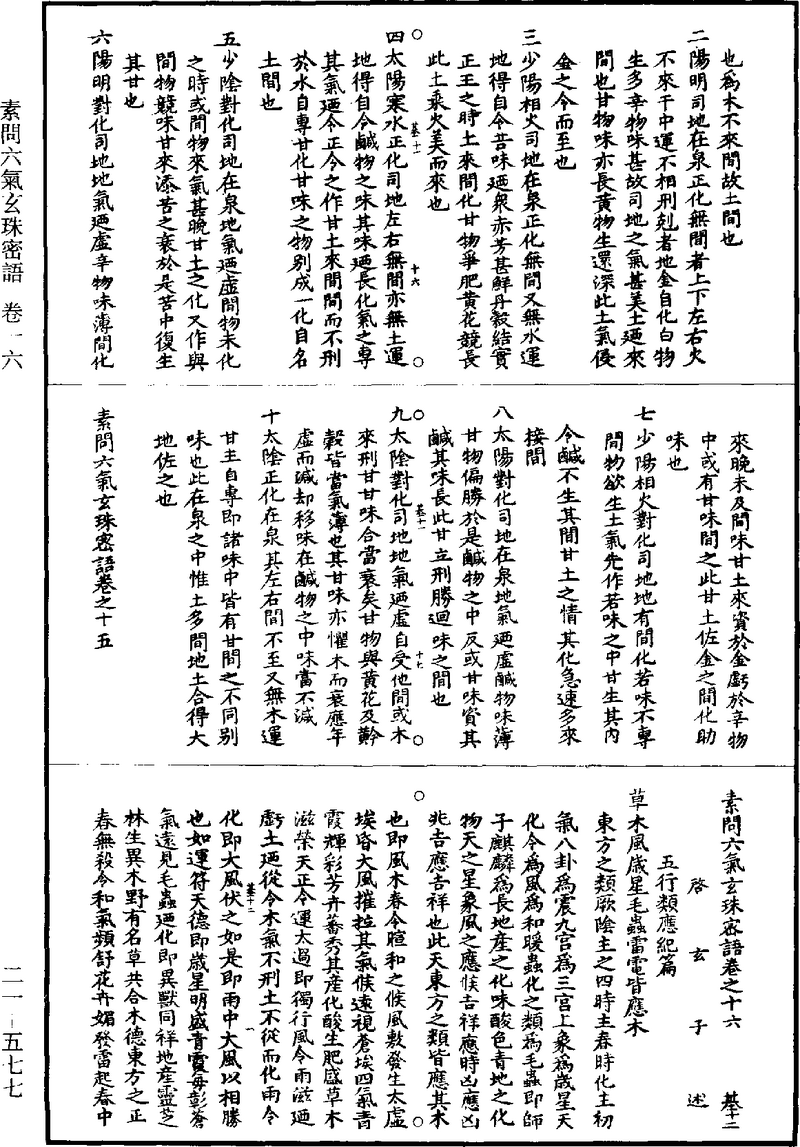 素問六氣玄珠密語 卷一六
二一–五七七
也為木不來間故土間也
二陽明司地在泉正化無間者上下左右火
不來干中運不相刑剋者地金自化白物
生多辛物味甚故司地之氣甚美土迺來
間也甘物味亦長黃物生還深此土氣侵
金之令而至也
三少陽相火司地在泉正化無間又無水運
地得自令苦味迺衆赤芳甚鮮丹穀結實
正王之時土來間化甘物爭肥黃花競長
此土乘火美而來也
四太陽寒水正化司地左右無間亦無土運
地得自令鹹物之味其味迺長化氣之專
其氣迺令正令之作甘土來間間而不刑
於水自專甘化甘味之物別成一化自名
土間也
五少陰對化司地在泉地氣迺虛間物未化
之時或間物來氣甚晚甘土之化又作與
間物競味甘來添苦之衰於是苦中復生
其甘也
六陽明對化司地地氣迺虛辛物味薄間化
基十一
十六
來晚未及間味甘土來資於金虧於辛物
中或有甘味間之此甘土佐金之間化助
味也
七少陽相火對化司地地有間化若味不專
間物欲生土氣先作若味之中甘生其內
令鹹不生其間甘土之情其化急速多來
接間
八太陽對化司地在泉地氣迺虛鹹物味薄
甘物偏勝於是鹹物之中反或甘味資其
鹹其味長此甘立刑勝迴味之間也
九太陰對化司地地氣迺虛自受他間或木
來刑甘甘味合當衰矣甘物與黃花及黅
穀皆當氣薄也其甘味亦懼木而衰應年
虛而減却移味在鹹物之中味當不減
十太陰正化在泉其左右間不至又無木運
甘主自專即諸味中皆有甘間之不同別
味也此在泉之中惟土多間地土合得大
地佐之也
素問六氣玄珠密語卷之十五
基十一
十七
素問六氣玄珠密語卷之十六 基十二
啓玄子述
五行類應紀篇
草木風歲星毛蟲雷電皆應木
東方之類厥陰主之四時主春時化主初
氣八卦為震九宮為三宮上象為歲星天
化令為風為和暖蟲化之類為毛蟲即師
子麒麟為長地產之化味酸色青地之化
物天之星象風之應候吉祥應時凶應凶
兆吉應吉祥也此天東方之類皆應其木
也即風木春令暄和之候風敷發生太虛
埃昏大風摧拉其氣候遠視蒼埃四氣青
霞輝彩芳卉蕃秀其產化酸生肥盛草木
滋榮天正令運太過即獨行風令雨滋迺
虧土迺從令木氣不刑土不從而化雨令
化即大風伏之如是即雨中大風以相勝
也如運符天德即歲星明盛青霞每彰蒼
氣遠見毛蟲迺化即異獸同祥地產靈芝
林生異木野有名草共合木德東方之正
春無殺令和氣頻舒花卉媚發雷起春中
基十二